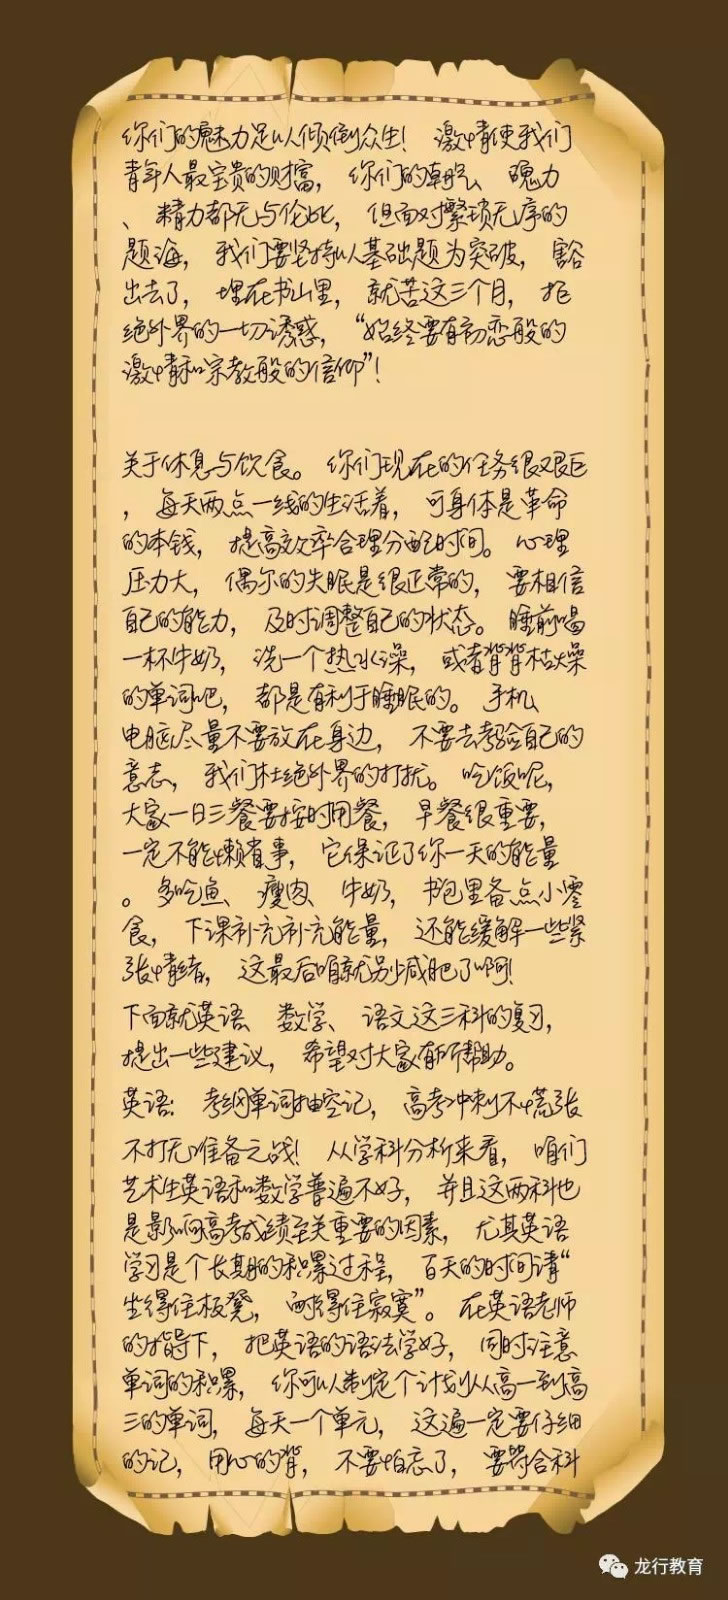 你们的魅力足以倾倒众生！ 激情使我们
青年人最宝贵的财富， 你们的朝气、 魄力
、 精力都无与伦比， 但面对繁琐无序的
题海， 我们要坚持以基础题为突破， 豁
出去了， 埋在书山里， 就苦这三个月， 拒
绝外界的一切诱惑， “始终要有初恋般的
激情和宗教般的信仰”！
关于休息与饮食。 你们现在的任务很艰巨
， 每天两点一线的生活着， 可身体是革命
的本钱， 提高效率合理分配时间。 心理
压力大， 偶尔的失眠是很正常的， 要相信
自己的能力， 及时调整自己的状态。 睡前喝
一杯牛奶， 洗一个热水澡， 或者背背枯燥
的单词吧， 都是有利于睡眠的。 手机、
电脑尽量不要放在身边， 不要去考验自己的
意志， 我们杜绝外界的打扰。 吃饭呢，
大家一日三餐要按时用餐， 早餐很重要，
一定不能懒省事， 它保证了你一天的能量
。 多吃鱼、 瘦肉、 牛奶， 书包里备点小零
食， 下课补充补充能量， 还能缓解一些紧
张情绪， 这最后咱就别减肥了啊！
下面就英语、 数学、 语文这三科的复习，
提出一些建议， 希望对大家有所帮助。
英语： 考纲单词抽空记， 高考冲刺不慌张
不打无准备之战！ 从学科分析来看， 咱们
艺术生英语和数学普遍不好， 并且这两科也
是影响高考成绩至关重要的因素， 尤其英语
学习是个长期的积累过程， 百天的时间请“
坐得住板凳， 耐得住寂寞”。 在英语老师
的指导下， 把英语的语法学好， 同时注意
单词的积累， 你可以制定个计划从高一到高
三的单词， 每天一个单元， 这遍一定要仔细
的记， 用心的背， 不要怕忘了， 要符合科
龙行教育